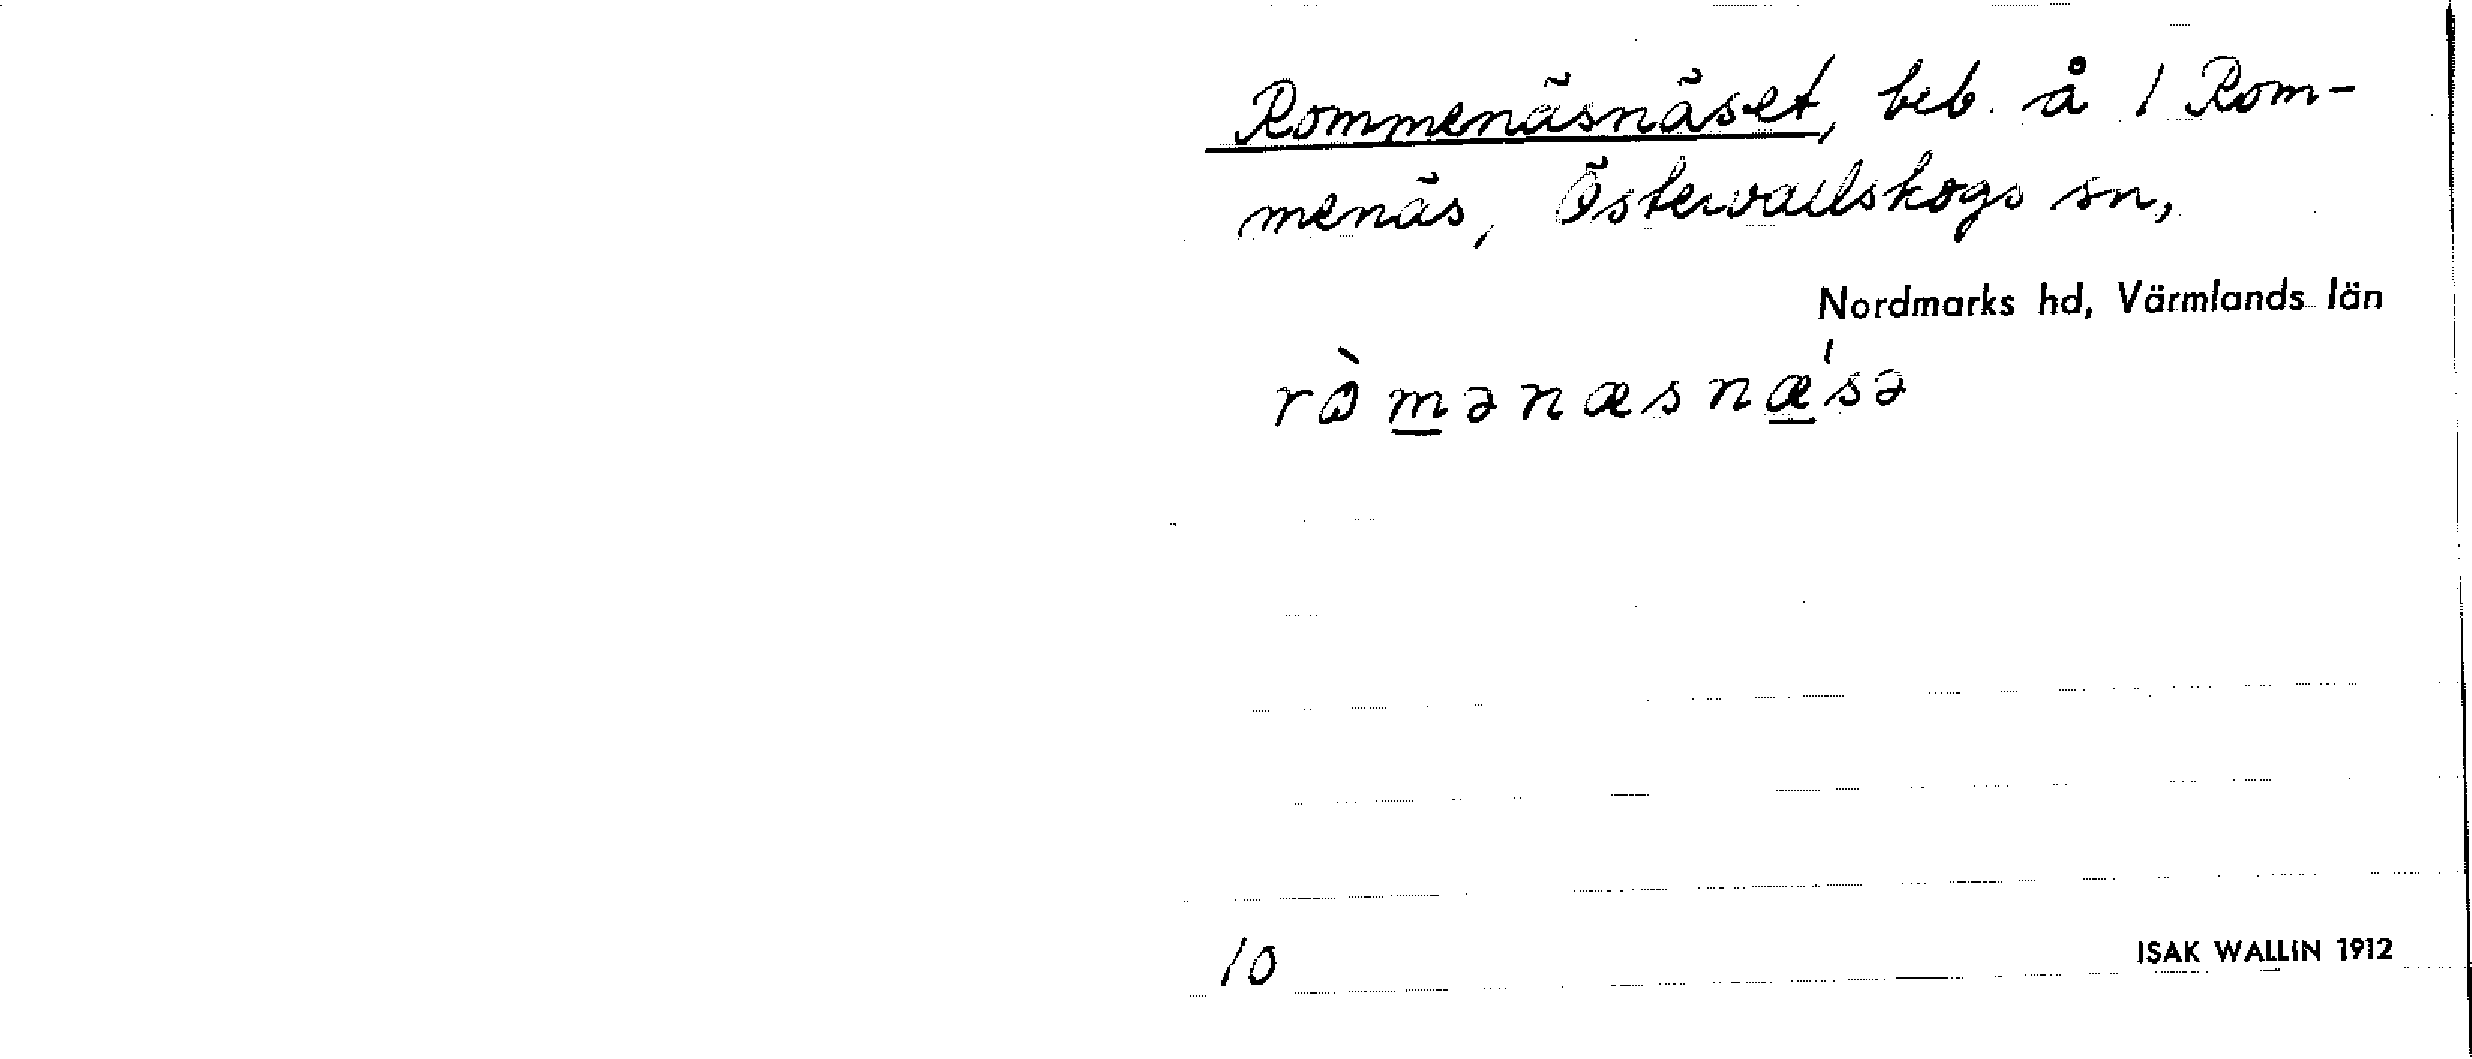 Rommenäsnäset, beb. å 1 Rom-
menäs, Östervallskogs sn,
Nordmarks hd, Värmlands län
rὼmənæsnǽsə
10
ISAK WALLIN 1912